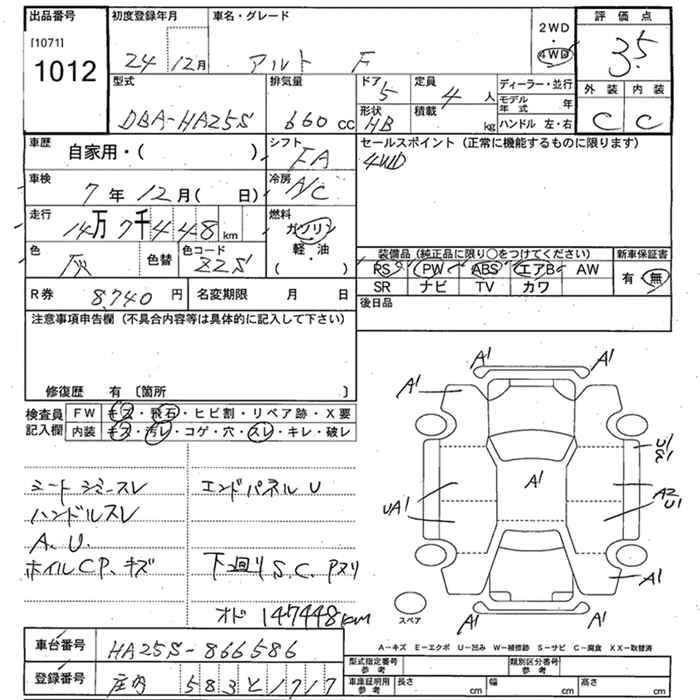 出品番号 初度登録年月 車名・グレード 2WD ・ 4WD 評価点
[1071]
1012 24 12月 アルト F 3.5
型式 排気量 ドア 定員 ディーラー・並行 外装 内装
DBA-HA25S 660 cc 5 4 人 モデル年式 年 C C
形状 HB 積載 kg ハンドル 左・右
車歴 自家用・( ) シフト FA セールスポイント (正常に機能するものに限ります)
4WD
車検 7年 12月( 日) 冷房 A/C
走行 14万7千448 km 燃料 ガソリン 軽・油 ( )
色 灰 色替 色コード ZZS
装備品 (純正品に限り○をつけてください) 新車保証書
PS PW ABS エアB AW 有・無
SR ナビ TV カワ
R券 8,740円 名変期限 月 日 後日品
注意事項申告欄 (不具合内容等は具体的に記入して下さい)
修復歴 有 〔箇所 〕
検査員 FW キズ・飛石・ヒビ割・リペア跡・X要
記入欄 内装 キズ・汚レ・コゲ・穴・スレ・キレ・破レ
A1 A1
A1 A1
U1
S1
A1
UA1 A2
U1
A1
A1 A1
スペア
エンドパネル U
ハンドルスレ
A.U.
ホイルCP、キズ 下回りS.C.Pヌリ
オド 147448km
A-キズ E-エクボ U-凹み W-補修跡 S-サビ C-腐食 XX-取替済
車台番号 HA25S-866586
登録番号 庄内 583 と 1717
型式指定番号 参考 類別区分番号 参考
車庫証明用 参考 長さ cm 幅 cm 高さ cm